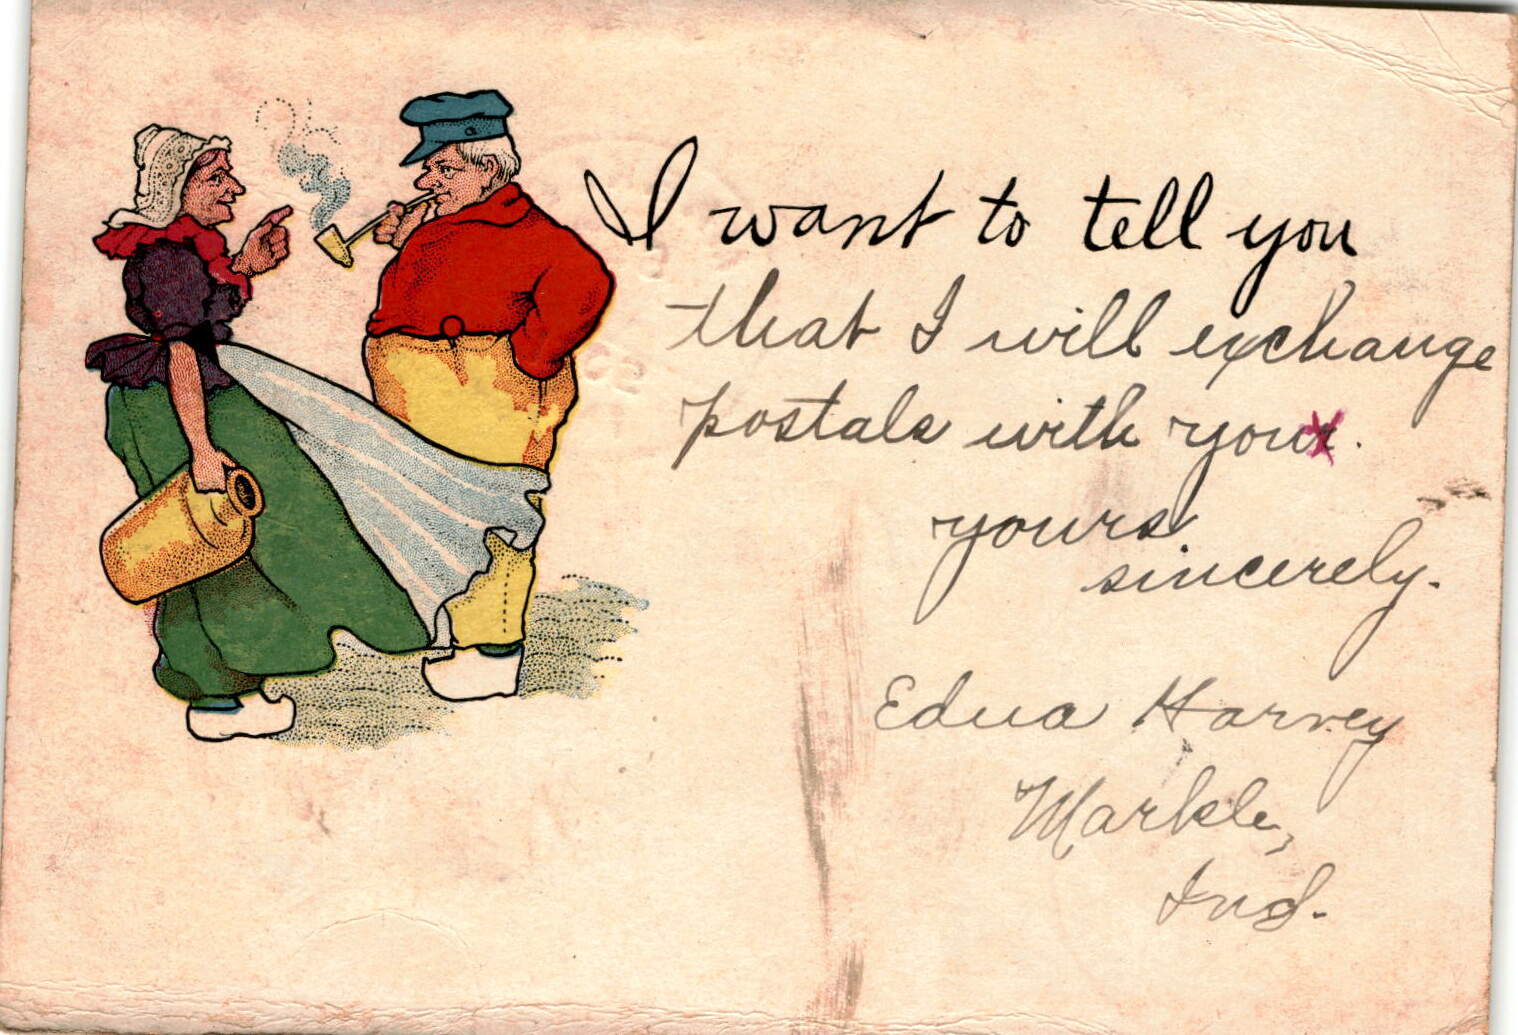 I want to tell you
that I will exchange
postals with you.
yours
sincerely.
Edna Harvey
Markle,
Ind.